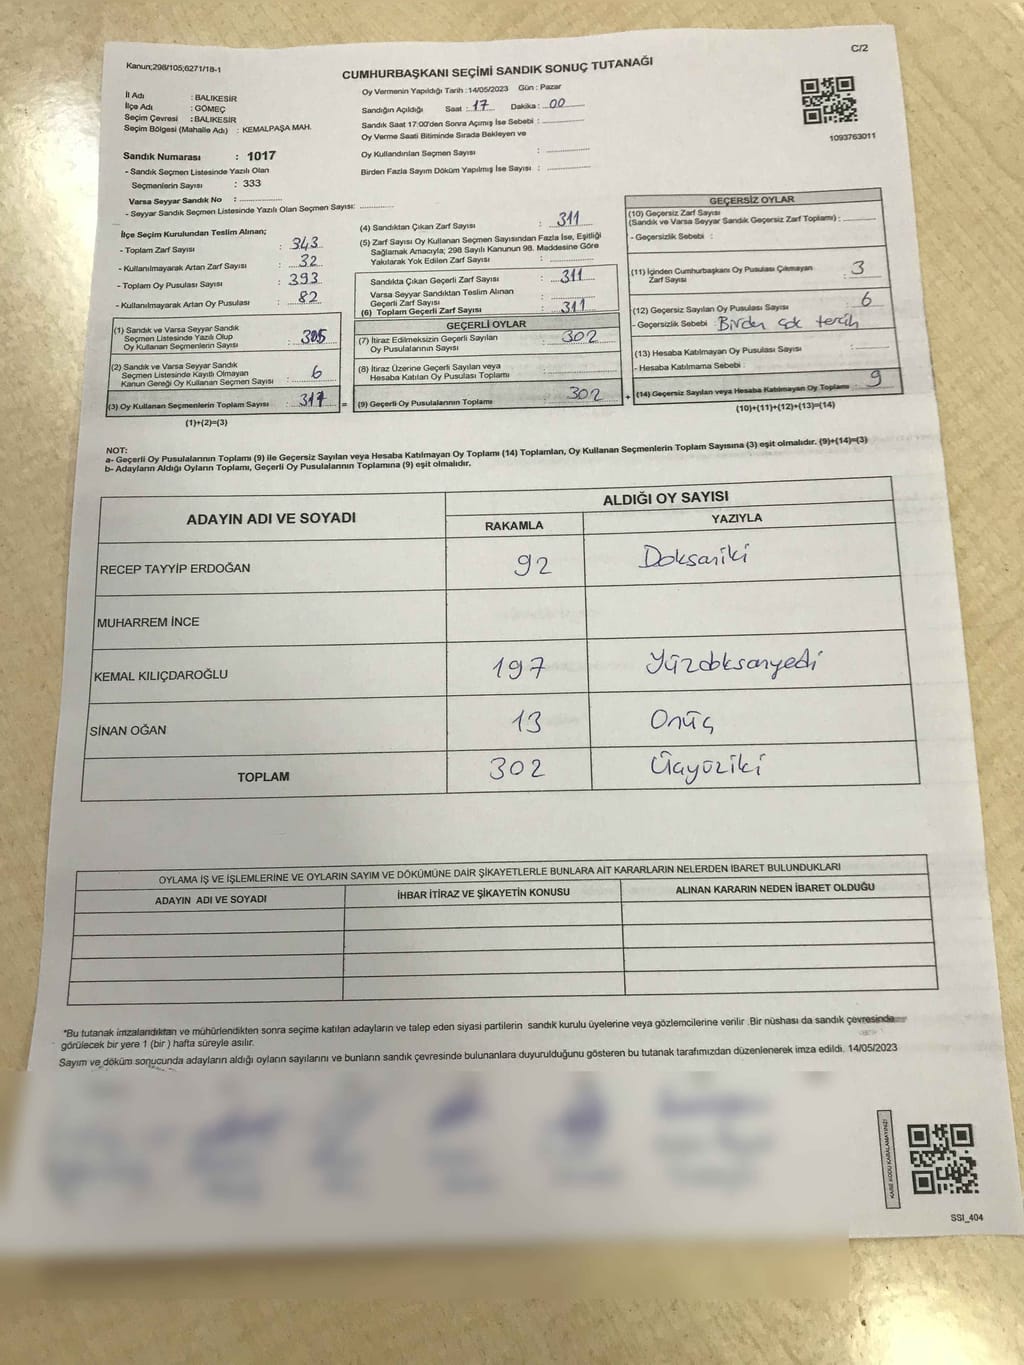 Kanun;298/105;6271/18-1
C/2
CUMHURBAŞKANI SEÇİMİ SANDIK SONUÇ TUTANAĞI
İl Adı : BALIKESİR
İlçe Adı : GÖMEÇ
Seçim Çevresi : BALIKESİR
Seçim Bölgesi (Mahalle Adı) : KEMALPAŞA MAH.
Oy Vermenin Yapıldığı Tarih :14/05/2023 Gün : Pazar
Sandığın Açıldığı Saat : 17 Dakika : 00
Sandık Saat 17:00'den Sonra Açımış İse Sebebi :
Oy Verme Saati Bitiminde Sırada Bekleyen ve
Oy Kullandırılan Seçmen Sayısı :
Birden Fazla Sayım Döküm Yapılmış İse Sayısı :
1093763011
Sandık Numarası : 1017
- Sandık Seçmen Listesinde Yazılı Olan
Seçmenlerin Sayısı : 333
Varsa Seyyar Sandık No :
- Seyyar Sandık Seçmen Listesinde Yazılı Olan Seçmen Sayısı:
İlçe Seçim Kurulundan Teslim Alınan;
- Toplam Zarf Sayısı : 343
- Kullanılmayarak Artan Zarf Sayısı : 32
- Toplam Oy Pusulası Sayısı : 393
- Kullanılmayarak Artan Oy Pusulası : 82
(1) Sandık ve Varsa Seyyar Sandık
Seçmen Listesinde Yazılı Olup
Oy Kullanan Seçmenlerin Sayısı : 305
(2) Sandık ve Varsa Seyyar Sandık
Seçmen Listesinde Kayıtlı Olmayan
Kanun Gereği Oy Kullanan Seçmen Sayısı : 6
(3) Oy Kullanan Seçmenlerin Toplam Sayısı : 311 =
(1)+(2)=(3)
(4) Sandıktan Çıkan Zarf Sayısı : 311
(5) Zarf Sayısı Oy Kullanan Seçmen Sayısından Fazla İse, Eşitliği
Sağlamak Amacıyla; 298 Sayılı Kanunun 98. Maddesine Göre
Yakılarak Yok Edilen Zarf Sayısı :
Sandıkta Çıkan Geçerli Zarf Sayısı : 311
Varsa Seyyar Sandıktan Teslim Alınan
Geçerli Zarf Sayısı :
(6) Toplam Geçerli Zarf Sayısı : 311
GEÇERLİ OYLAR
(7) İtiraz Edilmeksizin Geçerli Sayılan
Oy Pusulalarının Sayısı : 302
(8) İtiraz Üzerine Geçerli Sayılan veya
Hesaba Katılan Oy Pusulası Toplamı :
(9) Geçerli Oy Pusulalarının Toplamı : 302 +
GEÇERSİZ OYLAR
(10) Geçersiz Zarf Sayısı
(Sandık ve Varsa Seyyar Sandık Geçersiz Zarf Toplamı) :
- Geçersizlik Sebebi :
(11) İçinden Cumhurbaşkanı Oy Pusulası Çıkmayan
Zarf Sayısı : 3
(12) Geçersiz Sayılan Oy Pusulası Sayısı : 6
- Geçersizlik Sebebi Birden çok tercih
(13) Hesaba Katılmayan Oy Pusulası Sayısı :
- Hesaba Katılmama Sebebi :
(14) Geçersiz Sayılan veya Hesaba Katılmayan Oy Toplamı : 9
(10)+(11)+(12)+(13)=(14)
NOT:
a- Geçerli Oy Pusulalarının Toplamı (9) ile Geçersiz Sayılan veya Hesaba Katılmayan Oy Toplamı (14) Toplamları, Oy Kullanan Seçmenlerin Toplam Sayısına (3) eşit olmalıdır. (9)+(14)=(3)
b- Adayların Aldığı Oyların Toplamı, Geçerli Oy Pusulalarının Toplamına (9) eşit olmalıdır.
ADAYIN ADI VE SOYADI
ALDIĞI OY SAYISI
RAKAMLA YAZIYLA
RECEP TAYYİP ERDOĞAN 92 Doksaniki
MUHARREM İNCE
KEMAL KILIÇDAROĞLU 197 Yüzdoksanyedi
SİNAN OĞAN 13 Onüç
TOPLAM 302 Üçyüziki
OYLAMA İŞ VE İŞLEMLERİNE VE OYLARIN SAYIM VE DÖKÜMÜNE DAİR ŞİKAYETLERLE BUNLARA AİT KARARLARIN NELERDEN İBARET BULUNDUKLARI
ADAYIN ADI VE SOYADI İHBAR İTİRAZ VE ŞİKAYETİN KONUSU ALINAN KARARIN NEDEN İBARET OLDUĞU
*Bu tutanak imzalandıktan ve mühürlendikten sonra seçime katılan adayların ve talep eden siyasi partilerin sandık kurulu üyelerine veya gözlemcilerine verilir .Bir nüshası da sandık çevresinde
görülecek bir yere 1 (bir ) hafta süreyle asılır.
Sayım ve döküm sonucunda adayların aldığı oyların sayılarını ve bunların sandık çevresinde bulunanlara duyurulduğunu gösteren bu tutanak tarafımızdan düzenlenerek imza edildi. 14/05/2023
KARE KODU KARALAMAYINIZ!
SSI_404